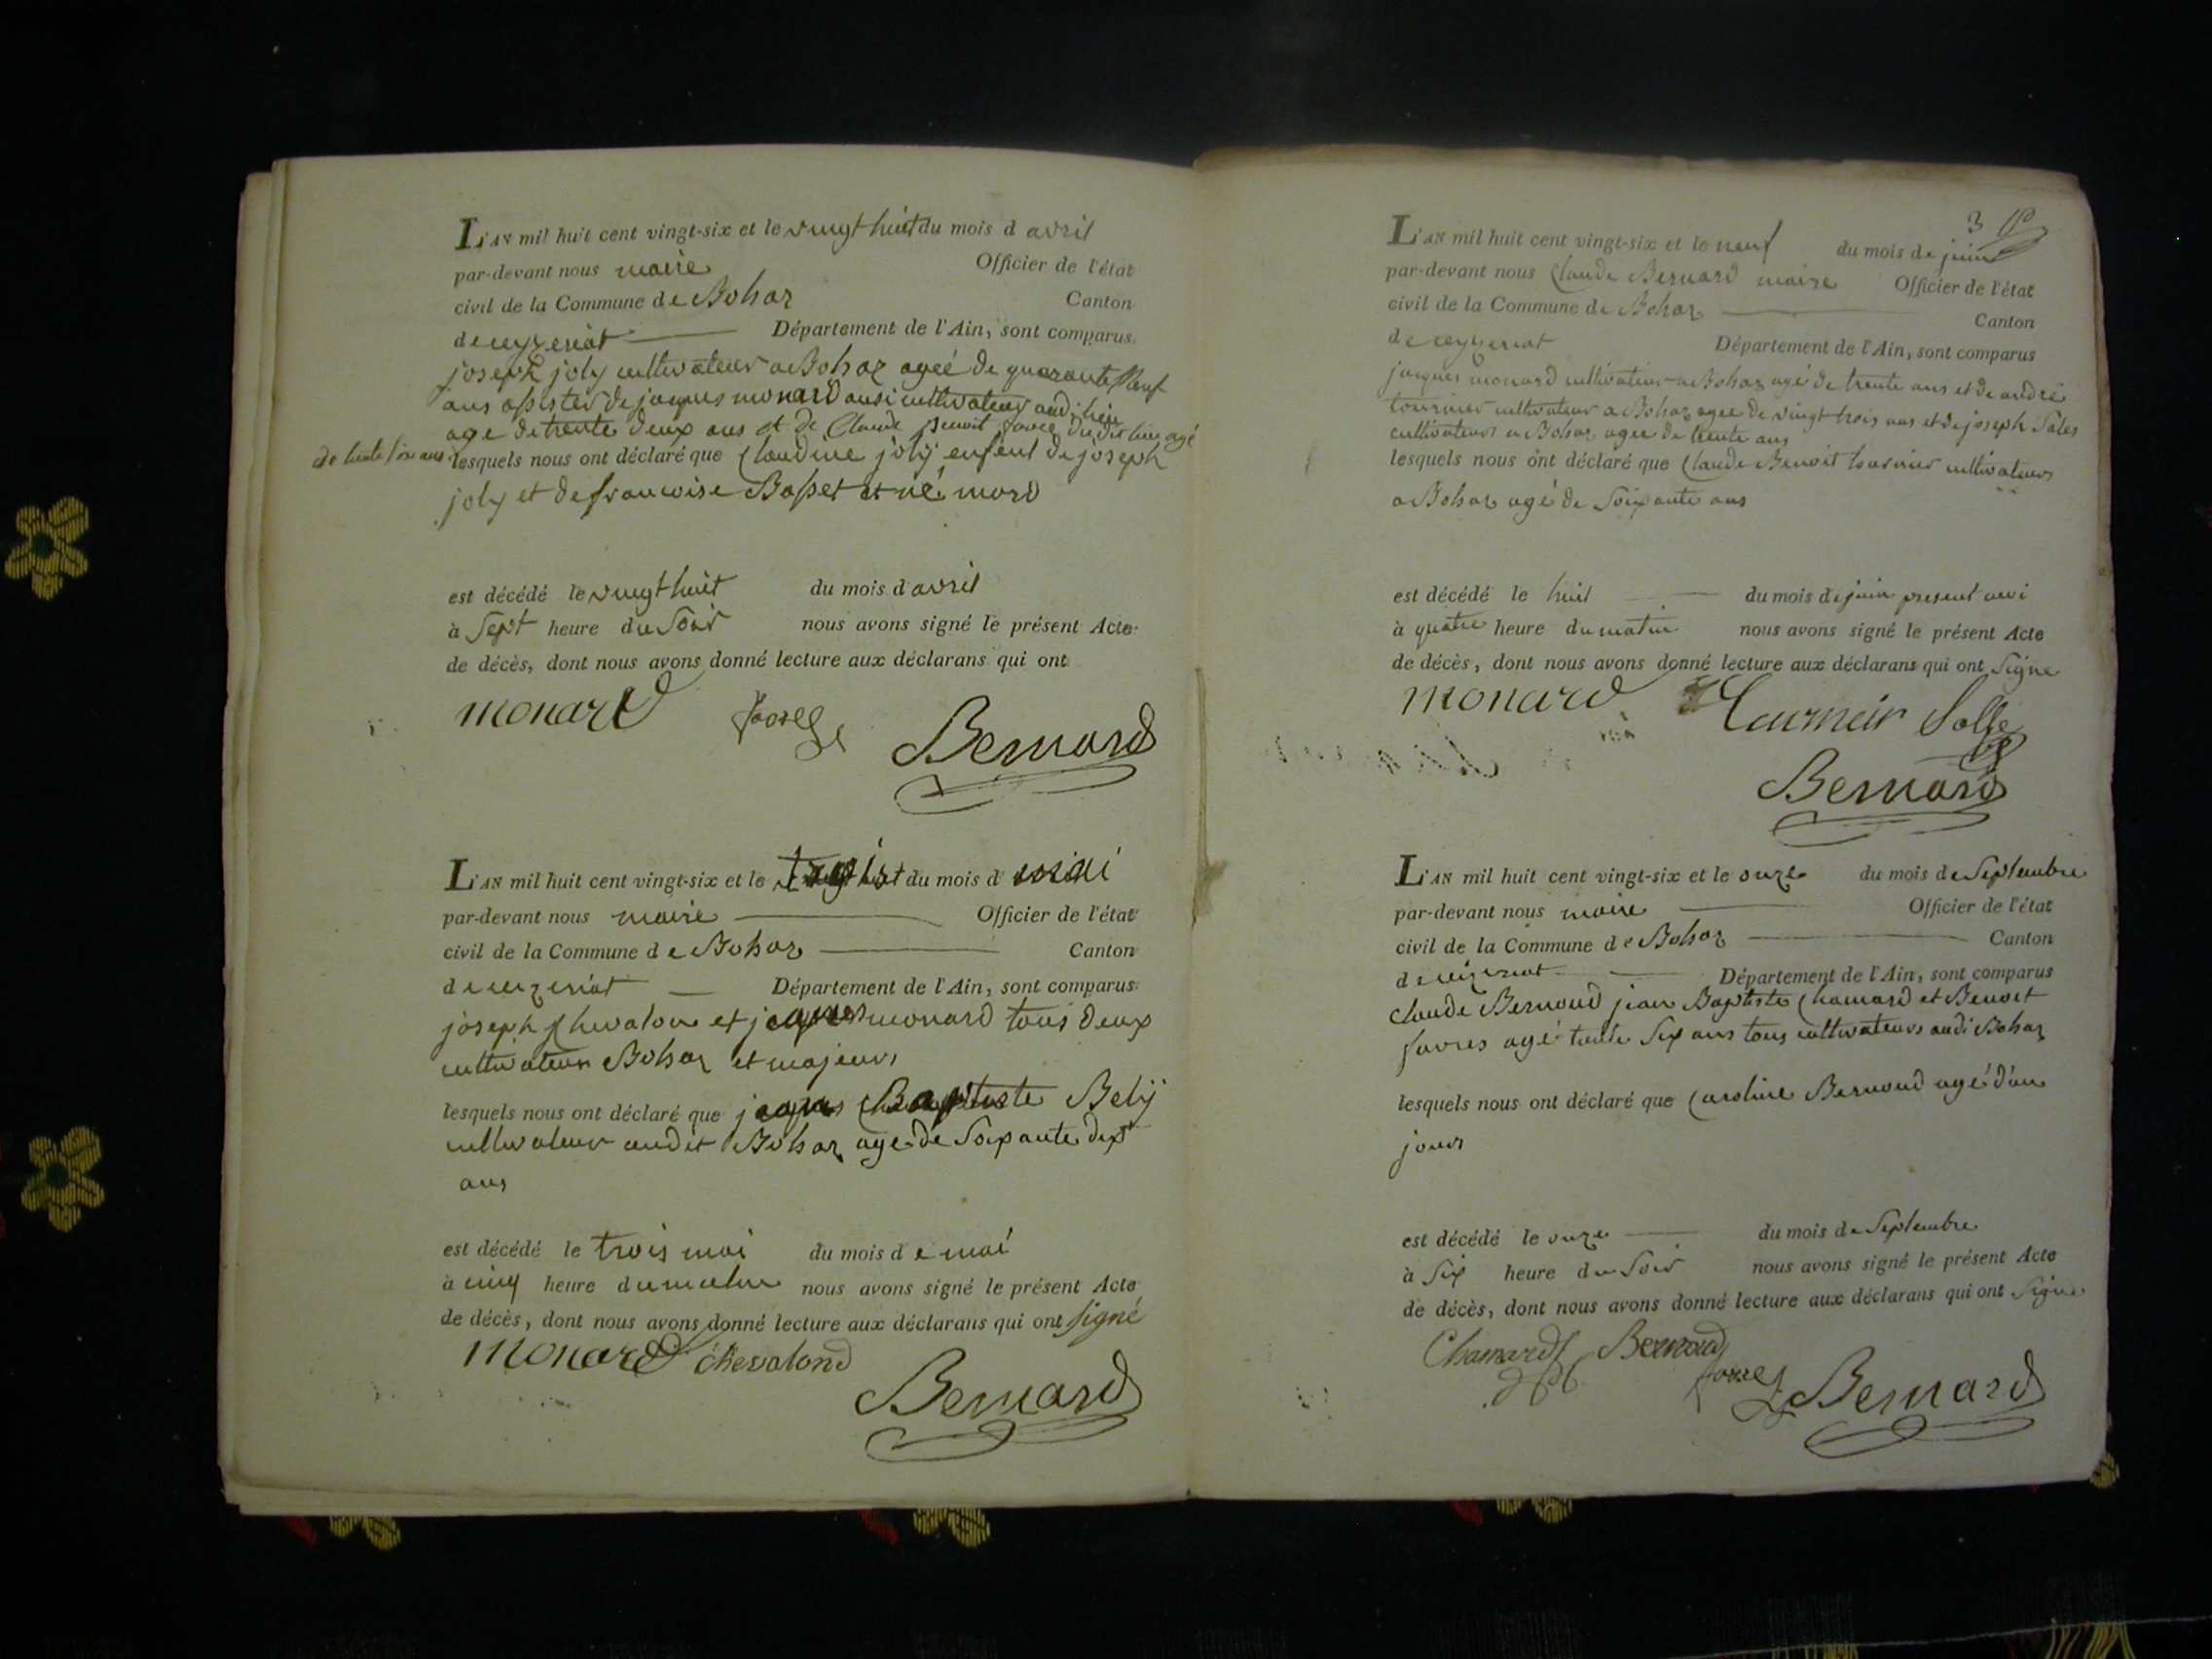 L'AN mil huit cent vingt-six et le vingt huit du mois d avril
par-devant nous maire Officier de l'état
civil de la Commune de Bohaz Canton
de ceyzeriat Département de l'Ain, sont comparus
joseph joly cultivateur a Bohaz ageé de quarante Neuf
ans assistés de jaques monard ausi cultivateur audi lieu
age de trente deux ans et de Claude Benoit favre du dit lieu agé
de trente six ans lesquels nous ont déclaré que Claudine joly enfent de joseph
joly et de francoise Basset et né mord
est décédé le vingt huit du mois d avril
à Sept heure du Soir nous avons signé le présent Acte
de décès, dont nous avons donné lecture aux déclarans qui ont
monard favre Bernard
L'AN mil huit cent vingt-six et le trois du mois d mai
par-devant nous maire Officier de l'état
civil de la Commune de Bohaz Canton
de ceyzeriat Département de l'Ain, sont comparus
joseph Chevalon et jaques monard tous deux
cultivateur Bohaz et majeurs
lesquels nous ont déclaré que jaques Baptiste Bely
cultivateur audit Bohaz age de Soixante dix
ans
est décédé le trois mai du mois d e mai
à cinq heure du matin nous avons signé le présent Acte
de décès, dont nous avons donné lecture aux déclarans qui ont signé
monard chevalond
Bernard
3
L'AN mil huit cent vingt-six et le neuf du mois de juin
par-devant nous Claude Bernard maire Officier de l'état
civil de la Commune de Bohaz Canton
de ceyzeriat Département de l'Ain, sont comparus
jacques monard cultivateur a Bohaz agé de trente ans et de andré
tournier cultivateur a Bohaz agee de vingt trois ans et de joseph Sales
cultivateur a Bohaz agee de trente ans
lesquels nous ont déclaré que Claude Benoit tournier cultivateur
a Bohaz agé de Soixante ans
est décédé le huit du mois de juin present
à quatre heure du matin nous avons signé le présent Acte
de décès, dont nous avons donné lecture aux déclarans qui ont Signe
monard Tourneir Salle
Bernard
L'AN mil huit cent vingt-six et le onze du mois de Septembre
par-devant nous maire Officier de l'état
civil de la Commune de Bohaz Canton
de Département de l'Ain, sont comparus
Claude Bernoud jean Baptiste Chamard et Benoit
favres agé trente Six ans tous cultivateurs audi Bohaz
lesquels nous ont déclaré que Caroline Bernoud agé d'un
jour
est décédé le onze du mois de Septembre
à Six heure du Soir nous avons signé le présent Acte
de décès, dont nous avons donné lecture aux déclarans qui ont Signe
Chamard Bernoud
favre Bernard